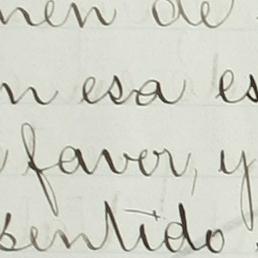 nen de
n esa es
favor, y
sentido